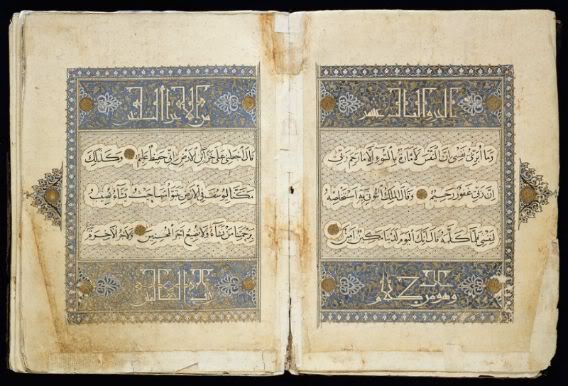 الجزء الثالث عشر
وما أبرئ نفسي إن النفس لأمارة بالسوء إلا ما رحم ربي
إن ربي غفور رحيم وقال الملك ائتوني به أستخلصه
لنفسي فلما كلمه قال إنك اليوم لدينا مكين أمين
وهو من كلام
من الأجزاء الثلاثين
قال اجعلني على خزائن الأرض إني حفيظ عليم وكذلك
مكنا ليوسف في الأرض يتبوأ منها حيث يشاء نصيب
برحمتنا من نشاء ولا نضيع أجر المحسنين ولأجر الآخرة
رب العالمين